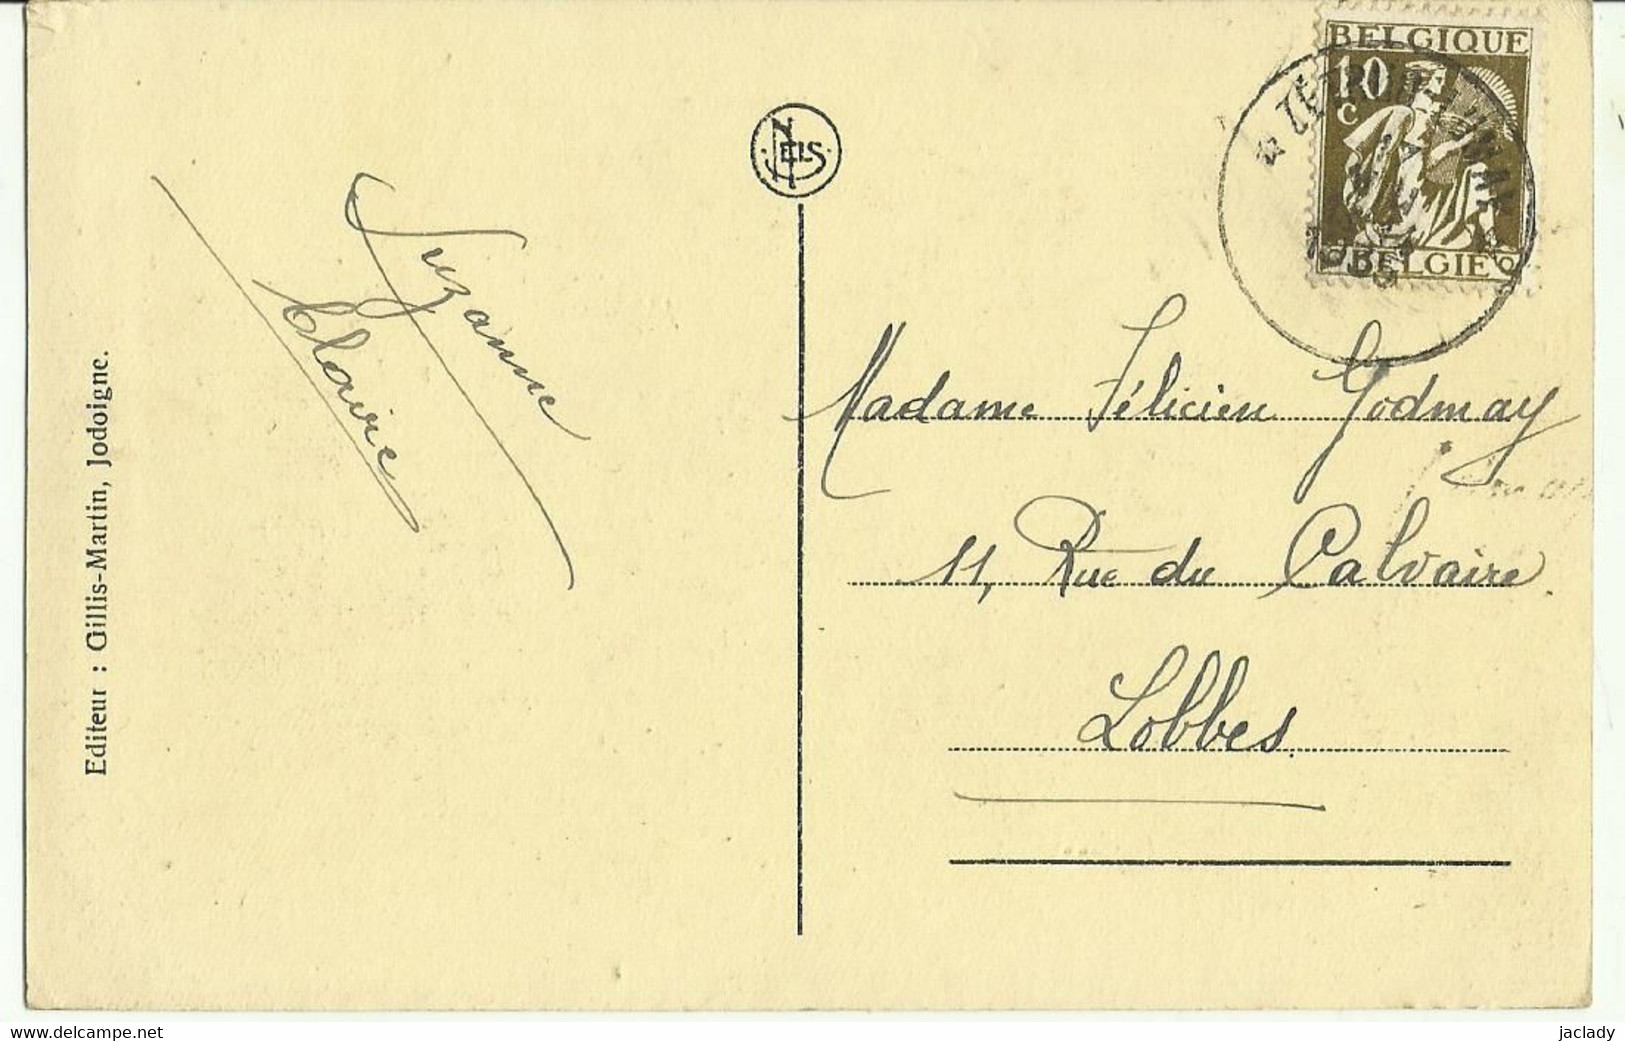 Editeur : Gillis-Martin, Jodoigne.
Suzanne
Claire
NELS
BELGIQUE
10
c
BELGIË
Madame Félicien Godmay
11, Rue du Calvaire
Lobbes
www.delcampe.net
jaclady